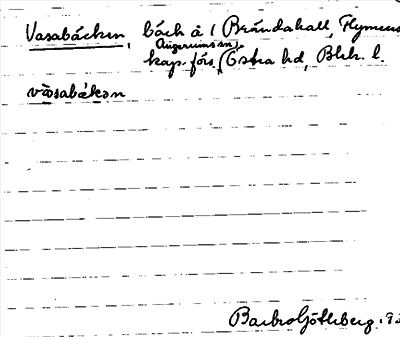 Vasabäcken, bäck å 1 (Brändahall, Flymens
Augerums sn,
kap. förs. (Östra hd, Blek. l.
vàsabäkən
Barbro Göttberg